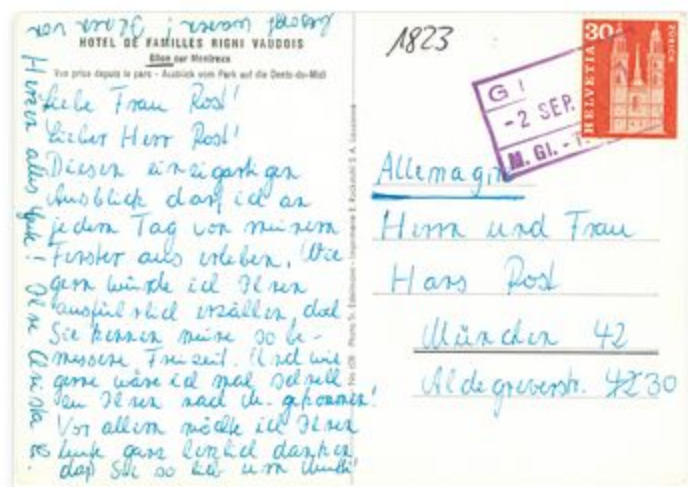 HOTEL DE FAMILLES RIGHI VAUDOIS
Glion sur Montreux
Vue prise depuis le parc - Ausblick vom Park auf die Dents-du-Midi
Liebe Frau Rost!
Lieber Herr Rost!
Diesen einzigartigen
Ausblick darf ich an
jedem Tag von meinem
Fenster aus erleben. Wie
gern würde ich Ihnen
ausführlich erzählen, doch
Sie kennen meine so be-
messene Freizeit. Und wie
gerne wäre ich mal schnell
zu Ihnen nach gekommen!
Vor allem möchte ich Ihnen
heute ganz herzlich danken
daß Sie so lieb um
Herzen alles Gute! Ihre Christa
1823
HELVETIA
30
ZÜRICH
-2 SEP.
M. Gl. - T.
Allemagne
Herrn und Frau
Hans Rost
München 42
Aldegreverstr. 30